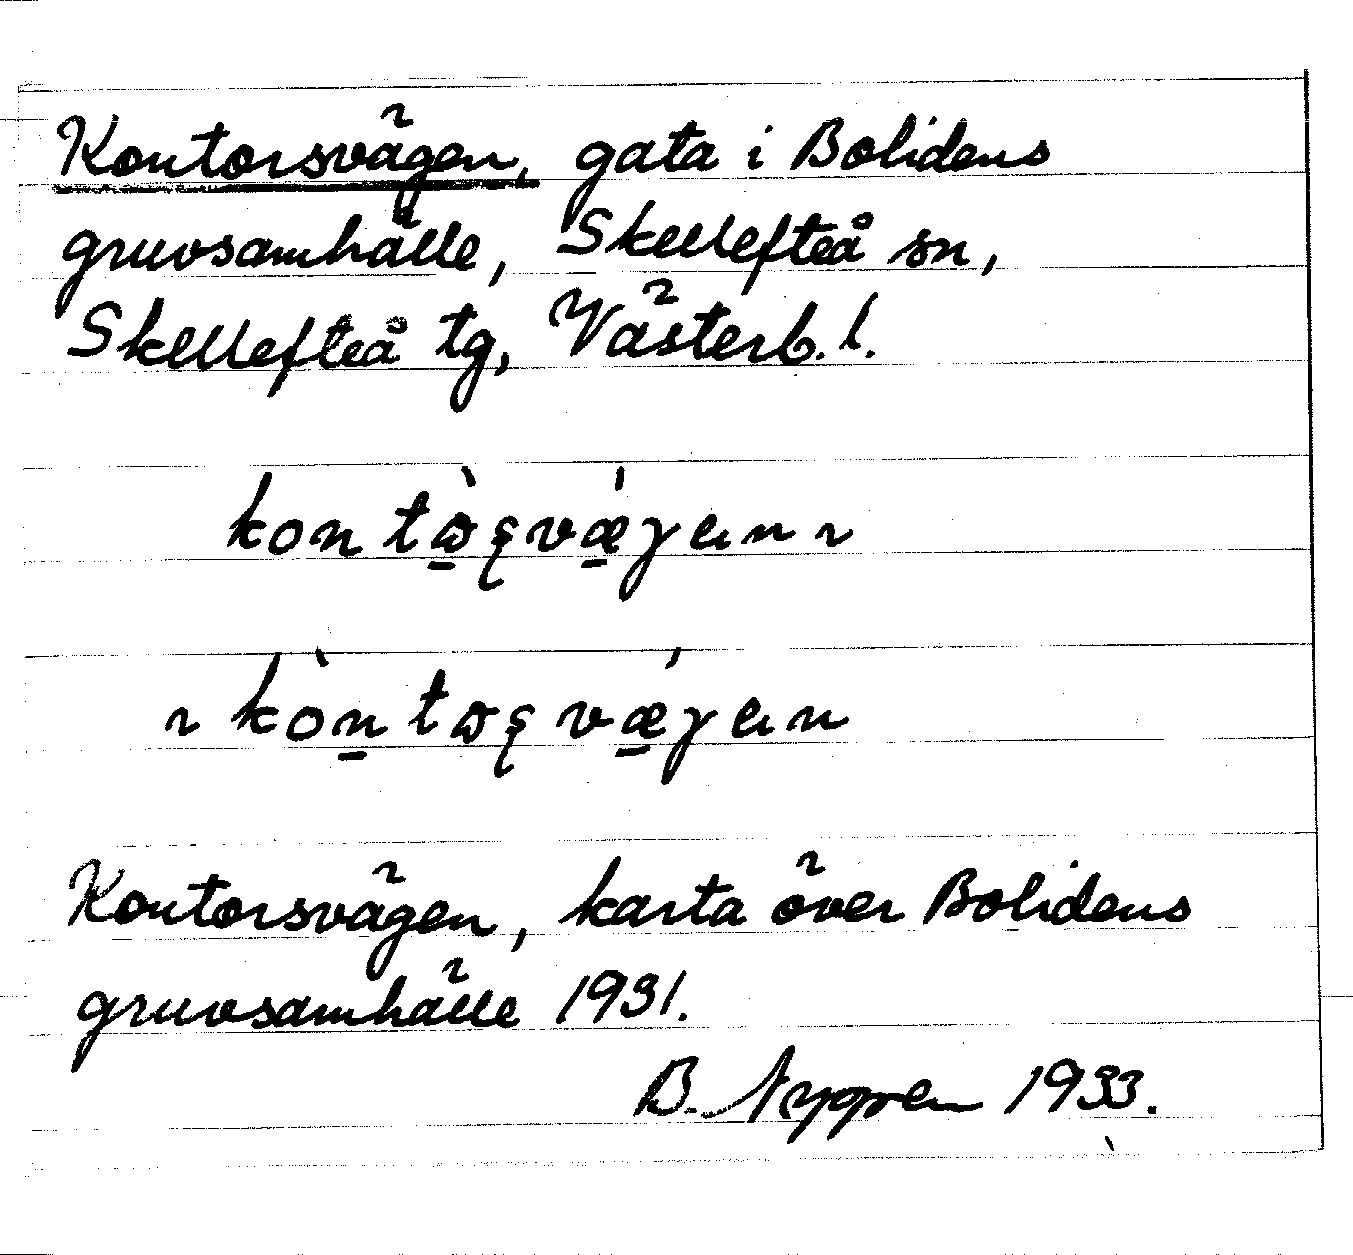 Kontorsvägen, gata i Bolidens
gruvsamhälle, Skellefteå sn,
Skellefteå tg, Västerb. l.
Kontorsvägen, karta över Bolidens
gruvsamhälle 1931.
B. Nygren 1933.